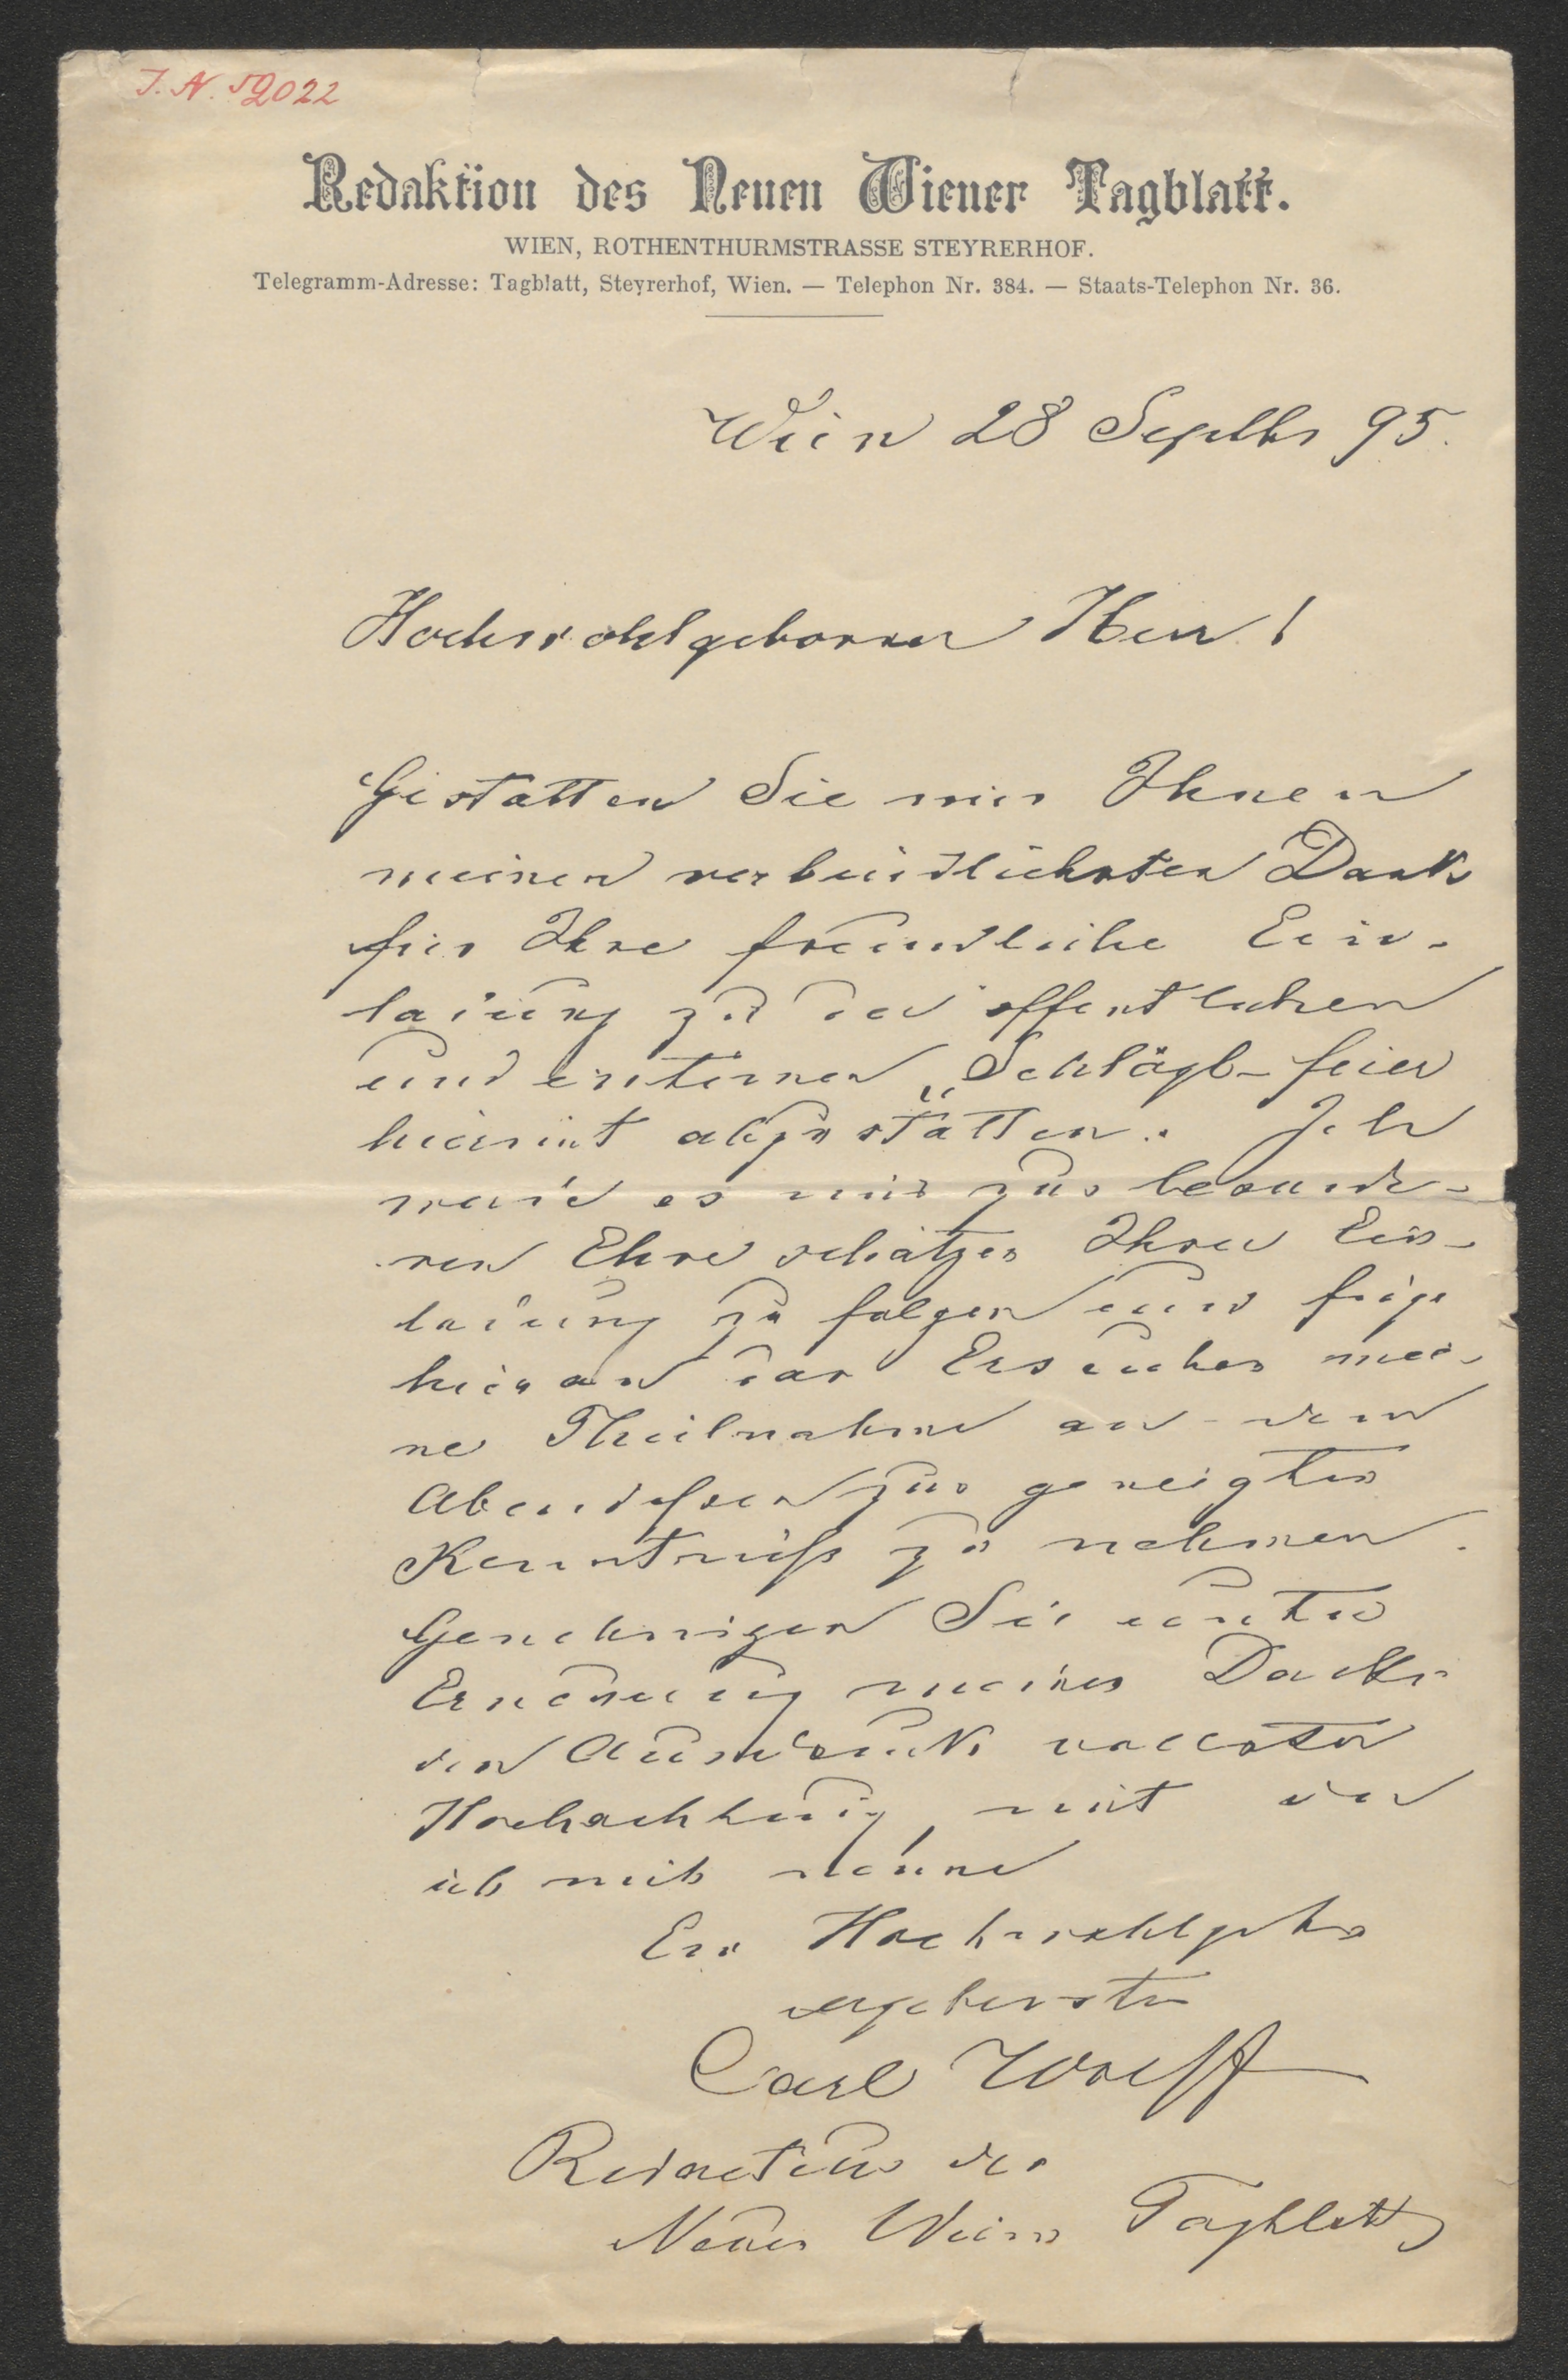 J. N. 59022
Redaktion des Neuen Wiener Tagblatt.
WIEN, ROTHENTHURMSTRASSE STEYRERHOF.
Telegramm-Adresse: Tagblatt, Steyrerhof, Wien. — Telephon Nr. 384. — Staats-Telephon Nr. 36.
Wien 28 Septbr 95.
Hochwohlgeborner Herr!
Gestatten Sie mir Ihnen
meinen verbindlichsten Dank
für Ihre freundliche Ein-
ladung zu der öffentlichen
und internen „Schlögl-feier
hiermit abzustatten. Ich
werde es mir zur besonde-
ren Ehre schätzen Ihrer Ein-
ladung zu folgen und füge
hieran das Ersuchen mei-
ne Theilnahme an dem
Abendessen zur geneigten
Kenntniß zu nehmen.
Genehmigen Sie unter
Erneuerung meines Dankes
den Ausdruck vollster
Hochachtung, mit der
ich mich nenne
Euer Hochwohlgeb
ergebenster
Carl Wolff
Redacteur des
Neuen Wiener Tagblatt